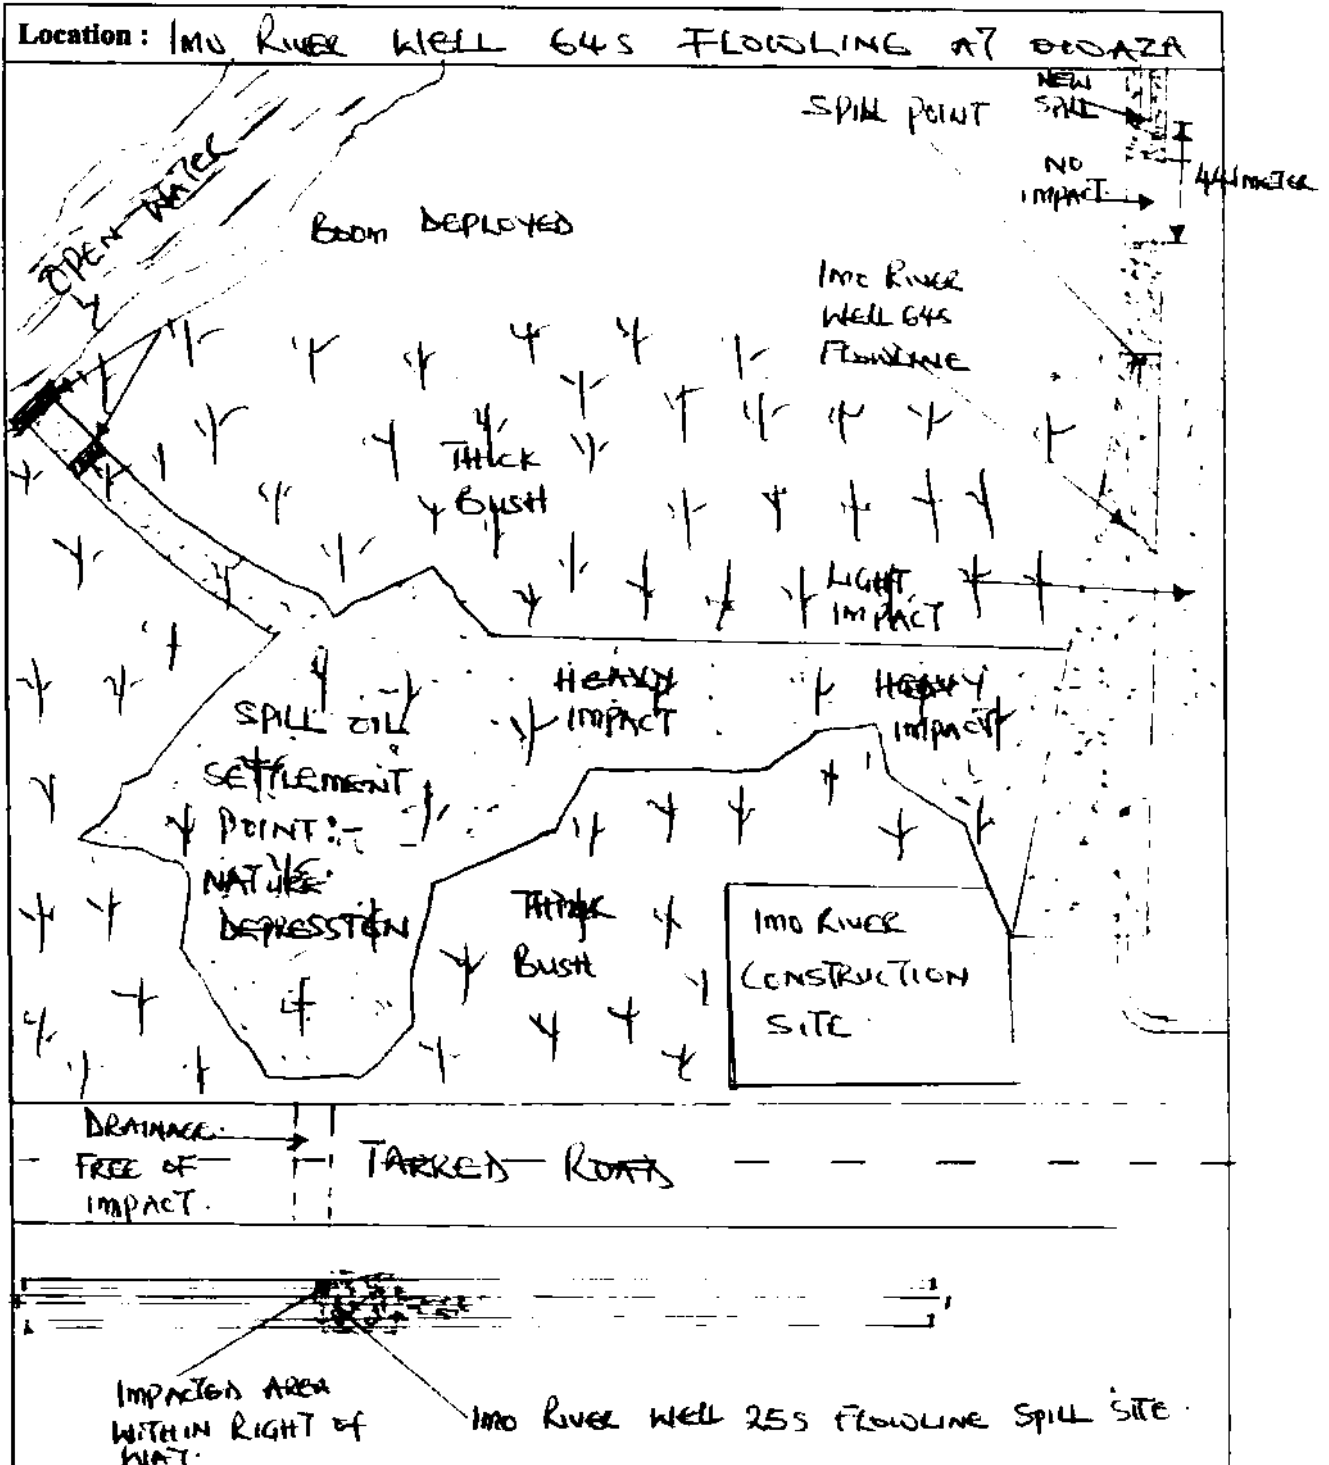 Location : IMO RIVER WELL 64S FLOWLING AT OWAZA
NEW
SPILL
SPILL POINT
NO
IMPACT
441 METER
OPEN WATER
BOOM DEPLOYED
IMO RIVER
WELL 64S
FLOWLINE
THICK
BUSH
LIGHT
IMPACT
HEAVY
IMPACT
HEAVY
IMPACT
SPILL OIL
SETTLEMENT
POINT :-
NATURE
DEPRESSION
THICK
BUSH
IMO RIVER
CONSTRUCTION
SITE
DRAINAGE
FREE OF
IMPACT.
TARRED ROAD
IMPACTED AREA
WITHIN RIGHT OF
WAY.
IMO RIVER WELL 25S FLOWLINE SPILL SITE.